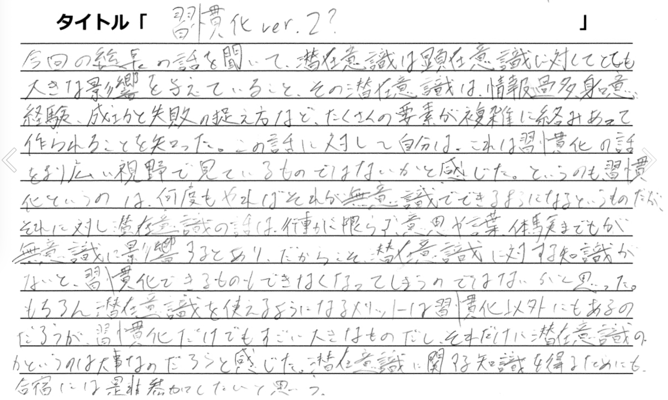 タイトル「 習慣化 ver.2? 」
今回の総長の話を聞いて、潜在意識は顕在意識に対してとても
大きな影響を与えていること、その潜在意識は、情報過多
経験、成功と失敗の捉え方など、たくさんの要素が複雑に絡みあって
作られることを知った。この話に対して自分は、これは習慣化の話
をより広い視野で見ているものではないかと感じた。というのも習慣
化というのは、何度もやればそれが無意識でできるようになるというものだが、
それに対し潜在意識の話は、行動に限らず意思や言葉、体験までもが
無意識に影響するとあり、だからこそ、潜在意識に対する知識が
ないと、習慣化できるものもできなくなってしまうのではないかと思った。
もちろん潜在意識を使えるようになるメリットは習慣化以外にもあるの
だろうが、習慣化だけでもすごい大きなものだし、それだけに潜在意識の
かというのは大事なのだろうと感じた。潜在意識に関する知識を得るためにも、
合宿には是非参加したいと思う。